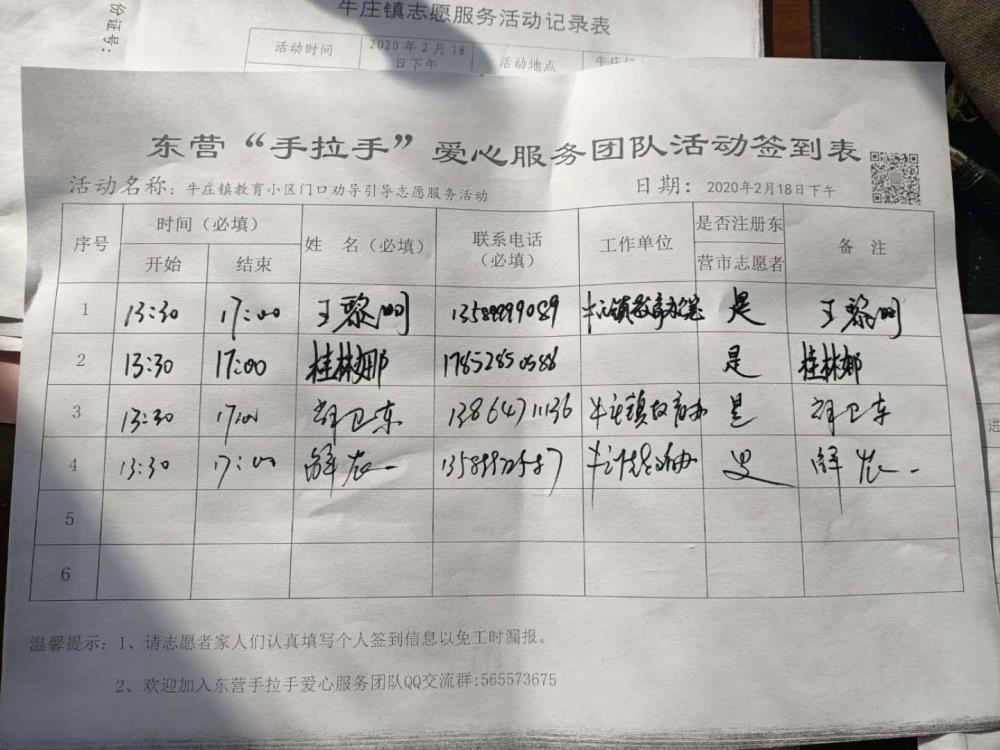 份证号:
牛庄镇志愿服务活动记录表
活动时间 2020年2月18日下午 活动地点
东营“手拉手”爱心服务团队活动签到表
活动名称: 牛庄镇教育小区门口劝导引导志愿服务活动 日期: 2020年2月18日下午
序号 时间(必填) 姓 名(必填) 联系电话(必填) 工作单位 是否注册东营市志愿者 备 注
开始 结束
1 13:30 17:00 王黎明 13589999089 牛庄镇教育办公室 是 王黎明
2 13:30 17:00 桂林娜 17852850586 是 桂林娜
3 13:30 17:00 胡卫东 13864711136 牛庄镇教育办 是 胡卫东
4 13:30 17:00 是
5
6
温馨提示: 1、请志愿者家人们认真填写个人签到信息以免工时漏报。
2、欢迎加入东营手拉手爱心服务团队QQ交流群:565573675